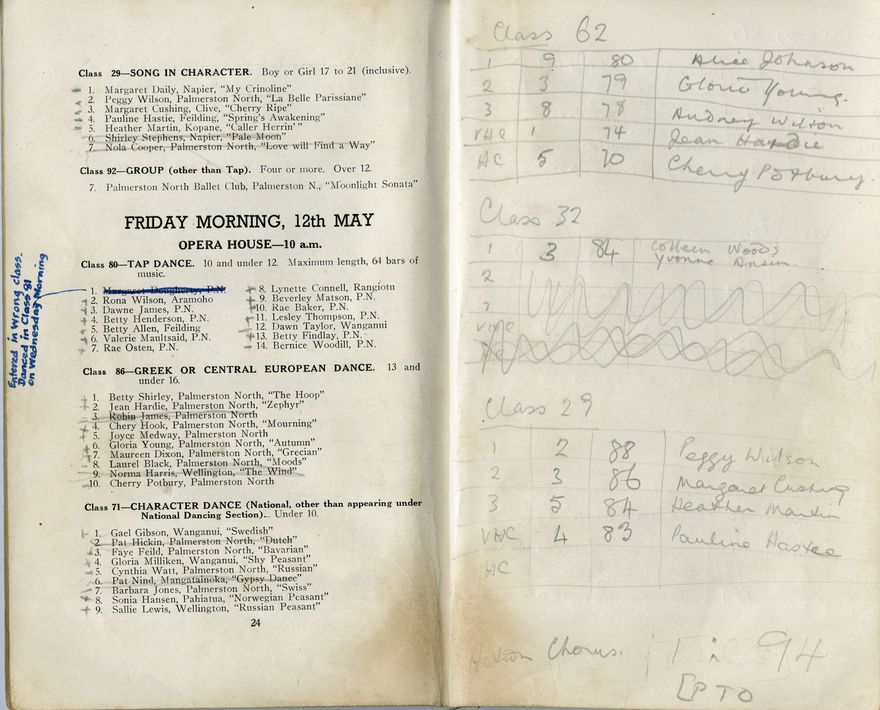 Class 29—SONG IN CHARACTER. Boy or Girl 17 to 21 (inclusive).
1. Margaret Daily, Napier, "My Crinoline"
2. Peggy Wilson, Palmerston North, "La Belle Parissiane"
3. Margaret Cushing, Clive, "Cherry Ripe"
4. Pauline Hastie, Feilding, "Spring's Awakening"
5. Heather Martin, Kopane, "Caller Herrin'"
6. Shirley Stephens, Napier, "Pale Moon"
7. Nola Cooper, Palmerston North, "Love will Find a Way"
Class 92—GROUP (other than Tap). Four or more. Over 12.
7. Palmerston North Ballet Club, Palmerston N., "Moonlight Sonata"
FRIDAY MORNING, 12th MAY
OPERA HOUSE—10 a.m.
Class 80—TAP DANCE. 10 and under 12. Maximum length, 64 bars of
music.
1. Margaret Dougherty, P.N.
2. Rona Wilson, Aramoho
3. Dawne James, P.N.
4. Betty Henderson, P.N.
5. Betty Allen, Feilding
6. Valerie Maultsaid, P.N.
7. Rae Osten, P.N.
8. Lynette Connell, Rangiotu
9. Beverley Matson, P.N.
10. Rae Baker, P.N.
11. Lesley Thompson, P.N.
12. Dawn Taylor, Wanganui
13. Betty Findlay, P.N.
14. Bernice Woodill, P.N.
Entered in wrong class.
Danced in Class 81
on Wednesday Morning
Class 86—GREEK OR CENTRAL EUROPEAN DANCE. 13 and
under 16.
1. Betty Shirley, Palmerston North, "The Hoop"
2. Jean Hardie, Palmerston North, "Zephyr"
3. Robin James, Palmerston North
4. Chery Hook, Palmerston North, "Mourning"
5. Joyce Medway, Palmerston North
6. Gloria Young, Palmerston North, "Autumn"
7. Maureen Dixon, Palmerston North, "Grecian"
8. Laurel Black, Palmerston North, "Moods"
9. Norma Harris, Wellington, "The Wind"
10. Cherry Potbury, Palmerston North
Class 71—CHARACTER DANCE (National, other than appearing under
National Dancing Section). Under 10.
1. Gael Gibson, Wanganui, "Swedish"
2. Pat Hickin, Palmerston North, "Dutch"
3. Faye Feild, Palmerston North, "Bavarian"
4. Gloria Milliken, Wanganui, "Shy Peasant"
5. Cynthia Watt, Palmerston North, "Russian"
6. Pat Nind, Mangatainoka, "Gypsy Dance"
7. Barbara Jones, Palmerston North, "Swiss"
8. Sonia Hansen, Pahiatua, "Norwegian Peasant"
9. Sallie Lewis, Wellington, "Russian Peasant"
24
Class 62
1 9 80 Alice Johnson
2 3 79 Gloria Young.
3 8 78 Audrey Wilson
VHC 1 74 Jean Hardie
HC 5 70 Cherry Potbury.
Class 32
1 3 84 Colleen Woods
Yvonne
2
3
VHC
Class 29
1 2 88 Peggy Wilson
2 3 86 Margaret Cushing
3 5 84 Heather Martin
VHC 4 83 Pauline Hastie
HC
Action Chorus. 94
[PTO